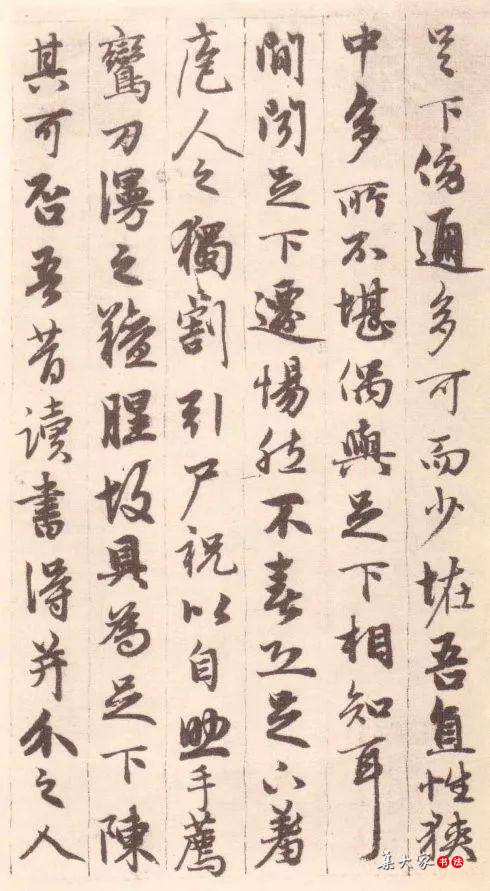 足下傍通多可而少怪吾直性狹
中多所不堪偶與足下相知耳
間聞足下遷惕然不喜恐足下羞
庖人之獨割引尸祝以自助手薦
鸞刀漫之羶腥故具為足下陳
其可否吾昔讀書得并介之人
集大家书法